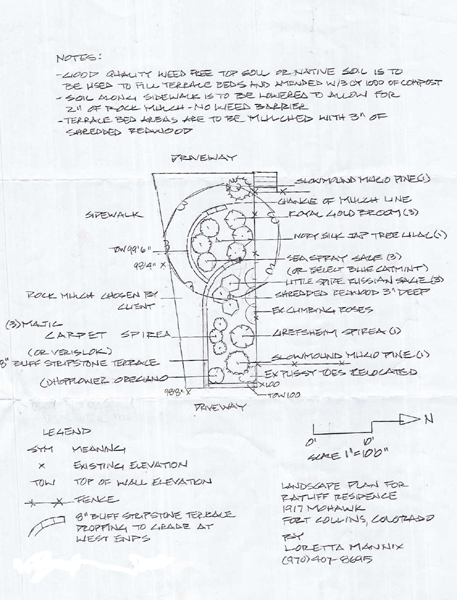 NOTES:
- GOOD QUALITY WEED FREE TOP SOIL OR NATIVE SOIL IS TO
BE USED TO FILL TERRACE BEDS AND AMENDED W/3 CY 1000 OF COMPOST
- SOIL ALONG SIDEWALK IS TO BE LOWERED TO ALLOW FOR
2" OF ROCK MULCH - NO WEED BARRIER
- TERRACE BED AREAS ARE TO BE MULCHED WITH 3" OF
SHREDDED REDWOOD
DRIVEWAY
SLOWMOUND MUGO PINE (1)
CHANGE OF MULCH LINE
SIDEWALK
ROYAL GOLD BROOM (3)
IVORY SILK JAP TREE LILAC (1)
TOW 99'6"
98'4"
SEA SPRAY SAGE (3)
(OR SELECT BLUE CATMINT)
LITTLE SPIRE RUSSIAN SAGE (3)
ROCK MULCH CHOSEN BY
CLIENT
SHREDDED REDWOOD 3" DEEP
EX CLIMBING ROSES
(3) MAGIC
CARPET SPIREA
GREFSHEIM SPIREA (1)
(OR VERISLOK)
8" BUFF STRIPSTONE TERRACE
SLOWMOUND MUGO PINE (1)
(1) HOPFLOWER OREGANO
EX PUSSYTOES RELOCATED
98'8"
100
TOW 100
DRIVEWAY
LEGEND
SYM MEANING
X EXISTING ELEVATION
TOW TOP OF WALL ELEVATION
FENCE
8" BUFF STRIPSTONE TERRACE
DROPPING TO GRADE AT
WEST ENDS
N
0' 10'
SCALE 1"=10'0"
LANDSCAPE PLAN FOR
RATLIFF RESIDENCE
1917 MOHAWK
FORT COLLINS, COLORADO
BY
LORETTA MANNIX
(970) 407-8695